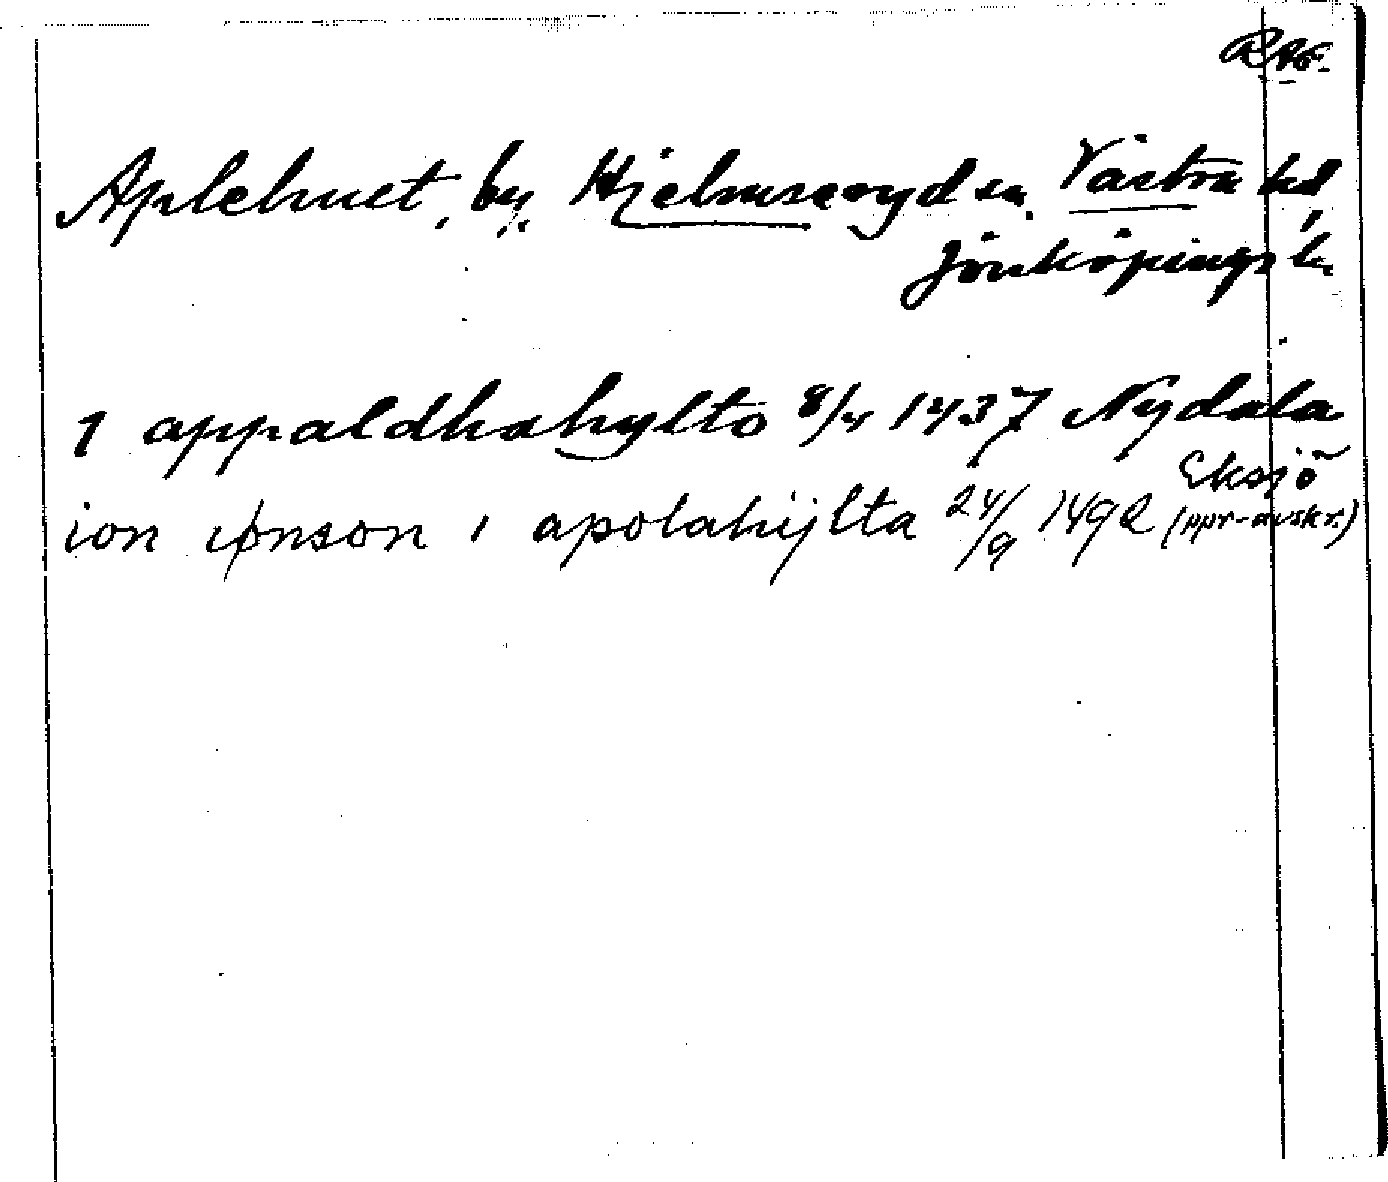 Aplehult, by, Hjelmseryd sn, Västra hd,
Jönköpings l.
1 appaldhahylto 8/4 1437 Nydala
Eksjö
ion iønson i apolahÿlta 24/9 1492 (ppr-avskr.)